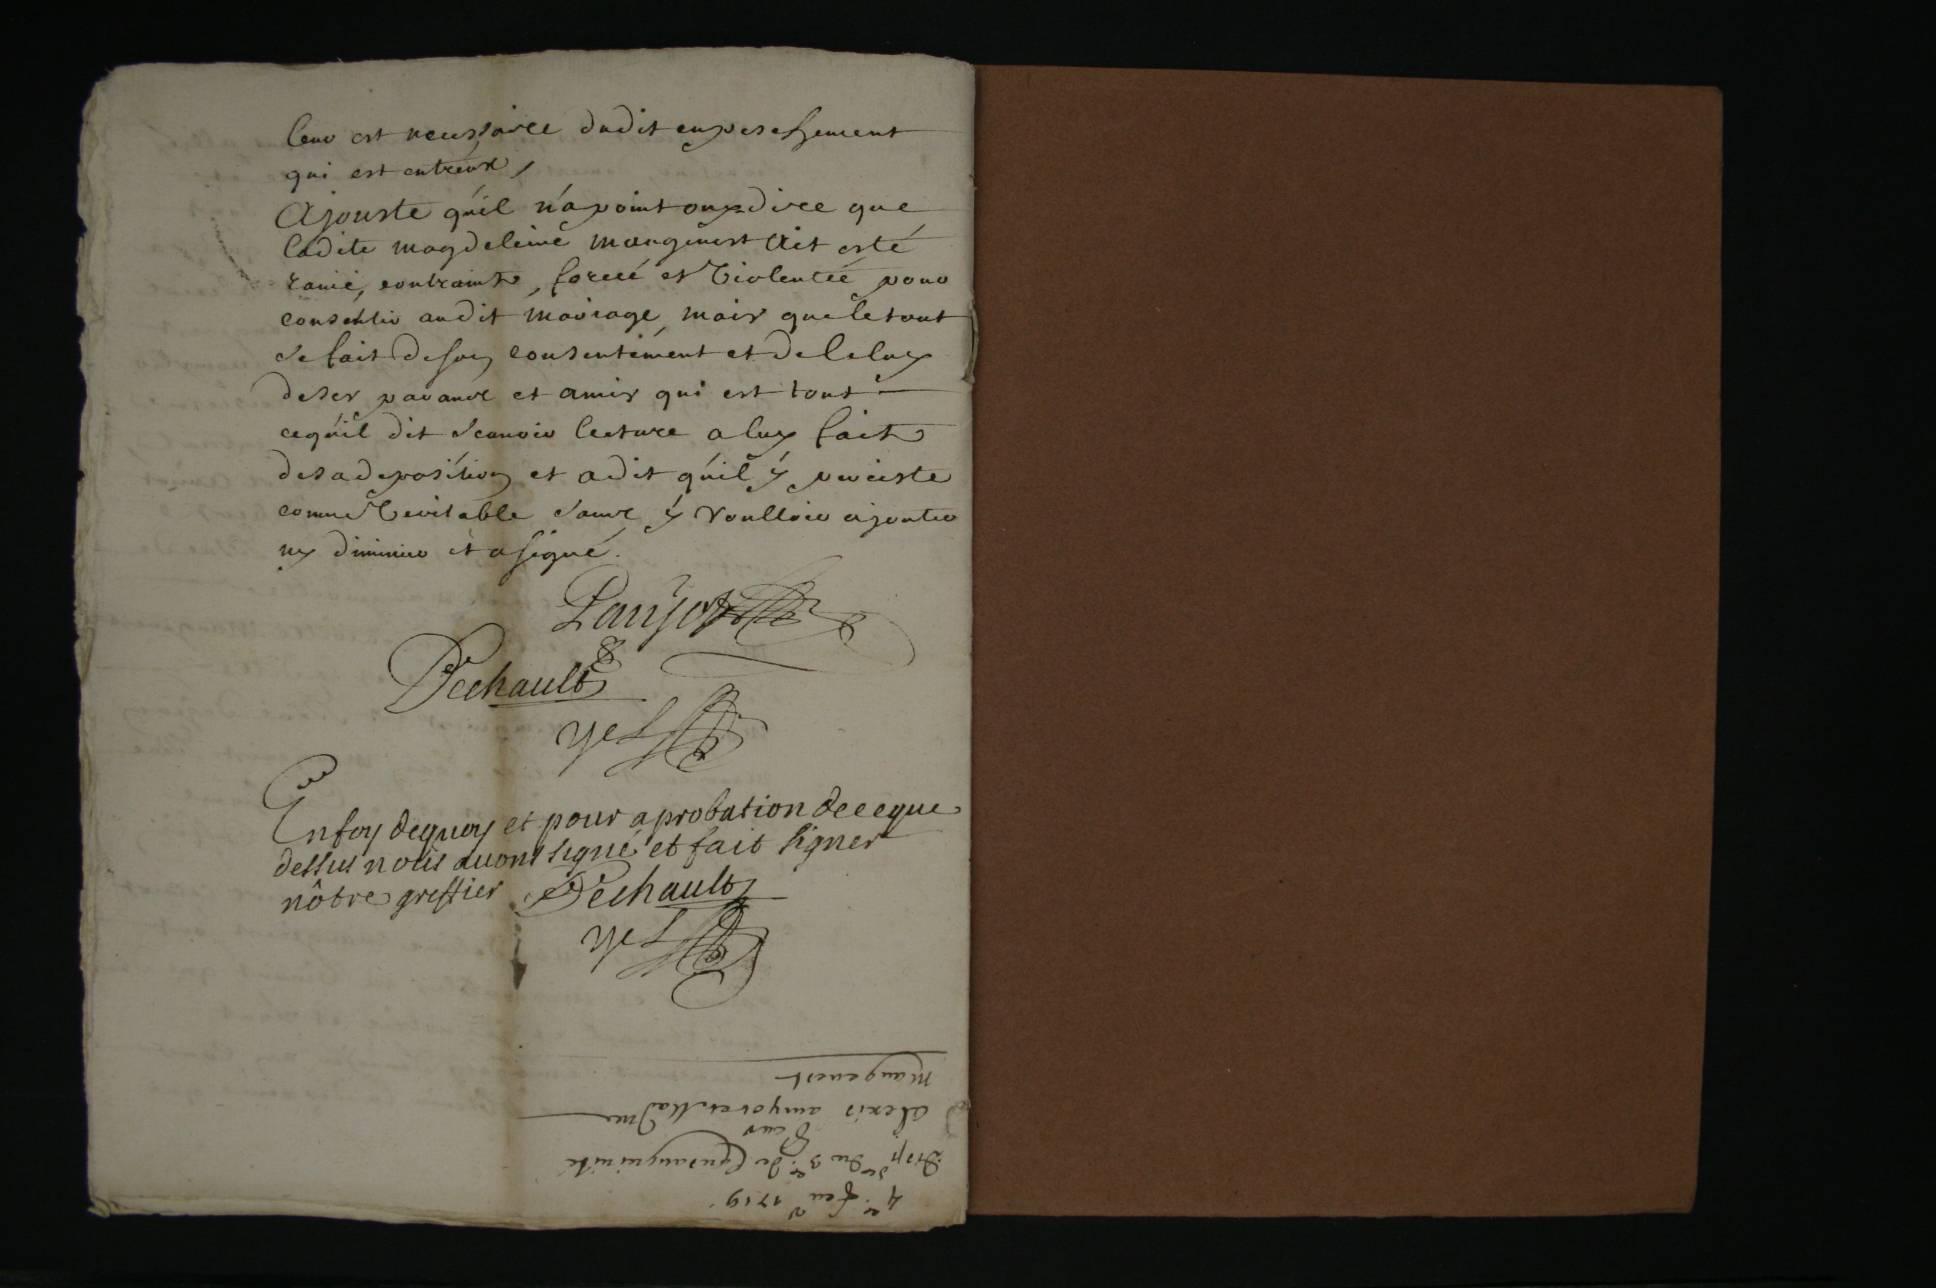 leur est necessaire dudit empeschement
qui est entreux,
Ajouste qu'il n'a point ouy dire que
ladite magdeleine maugenest ait esté
ravie, contrainte, forcée et violentée pour
consentir audit mariage, mais que le tout
se fait de son consentement et de celuy
de ses parans et amis qui est tout
cequ'il dit scauoir lecture a luy faite
desa deposition et adit qu'il y persiste
comme veritable sans y voulloir ajouter
ny diminuer et a signé.
Dechault
En foy dequoy et pour aprobation de ce que
dessus nous auons signé et fait signer
nôtre greffier Dechault
4e feur 1719
Disp du 3e de Consanguinité
pour
alexis amyot et Mad ne
maugenest